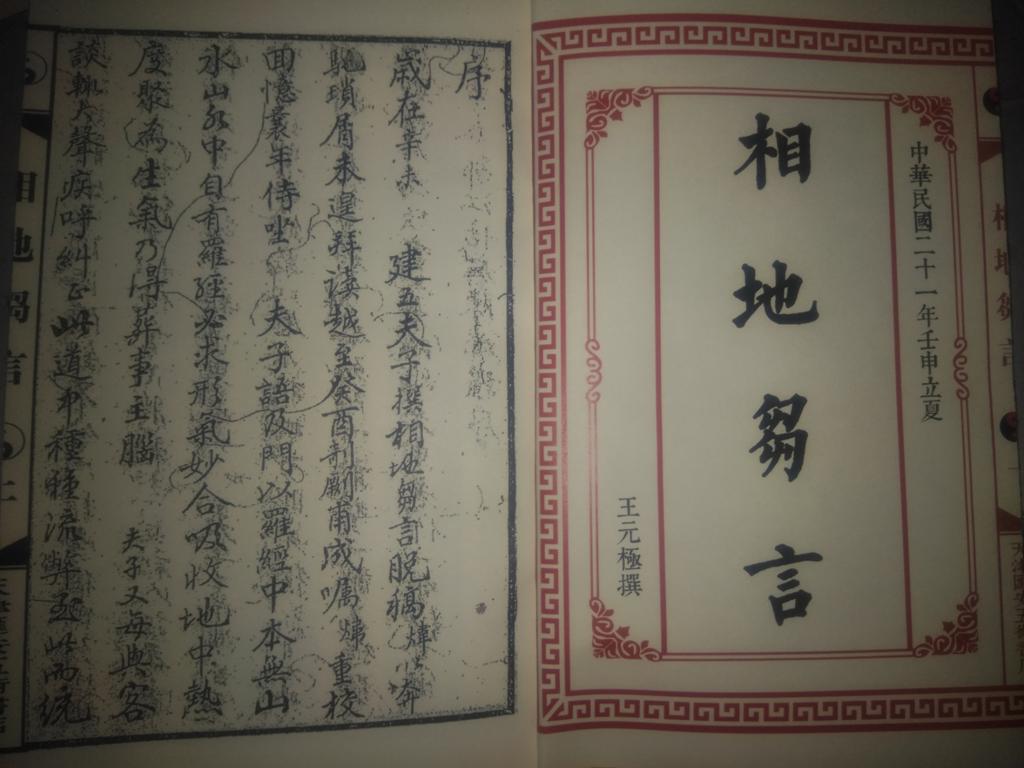 中華民國二十一年壬申立夏
相地芻言
王元極撰
相地芻言
序
歲在辛未 建五夫子撰相地芻言脫稿煒以奔
馳瑣屑未遑拜讀越至癸酉剞劂甫成囑煒重校
回憶曩年侍坐 夫子語及門以羅經中本無山
水山水中自有羅經必求形氣妙合吸收地中熱
度聚為生氣乃得葬事主腦 夫子又每與客
談輒大聲疾呼糾正此道中種種流弊至此而統
相地芻言